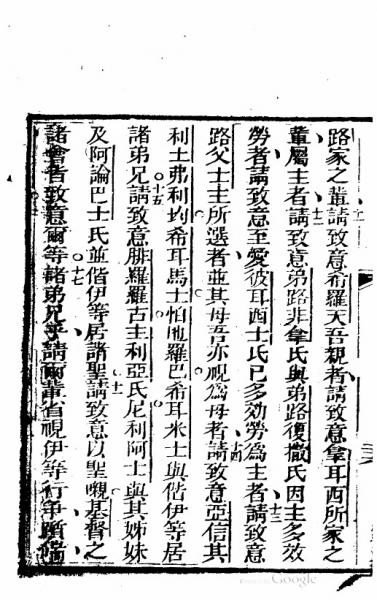 路家之輩請致意希羅天吾親者請致意拿耳西所家之
十二
輩屬主者請致意弟路非拿氏與弟路復撒氏因主多效
勞者請致意至愛彼耳西士氏已多効勞為主者請致意
十三
路父士主所選者並其母吾亦視為母者請致意亞信其
十四
利土弗利均希耳馬士怕地羅巴希耳米士與偕伊等居
十五
諸弟兄請致意腓羅羅古主利亞氏尼利阿士與其姊妹
及阿論巴士氏並偕伊等居諸聖請致意以聖嚫基督之
十六
諸會者致意爾等諸弟兄乎請爾輩省視伊等行爭躓
十七
Google